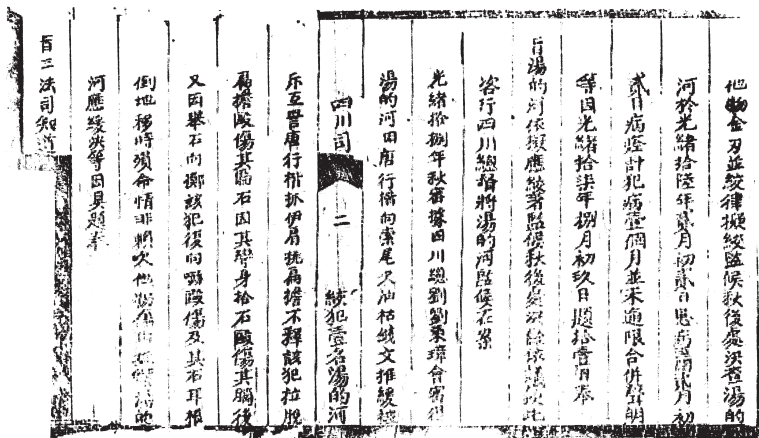 他物金刃並絞律擬絞監候秋後處決查湯的
河於光緒拾陸年貳月初貳日患病閏貳月初
貳日病痊計犯病壹個月並未逾限合併聲明
等因光緒拾柒年捌月初玖日題拾壹日奉
旨湯的河依擬應絞著監候秋後處決餘依議欽此
咨行四川總督將湯的河監候在案
光緒拾捌年秋審據四川總督劉秉璋會審得
湯的河因唐行楷向索尾欠油枯錢文推緩被
四川司 二 絞犯壹名湯的河
斥互詈唐行楷抓伊肩扭扁擔不釋該犯拉脫
扁擔毆傷其 因其彎身拾石毆傷其腦後
又因舉石向擲該犯復向嚇毆傷及其右耳根
倒地移時殞命情非輕欠他物
河應緩決等因具題奉
旨三法司知道